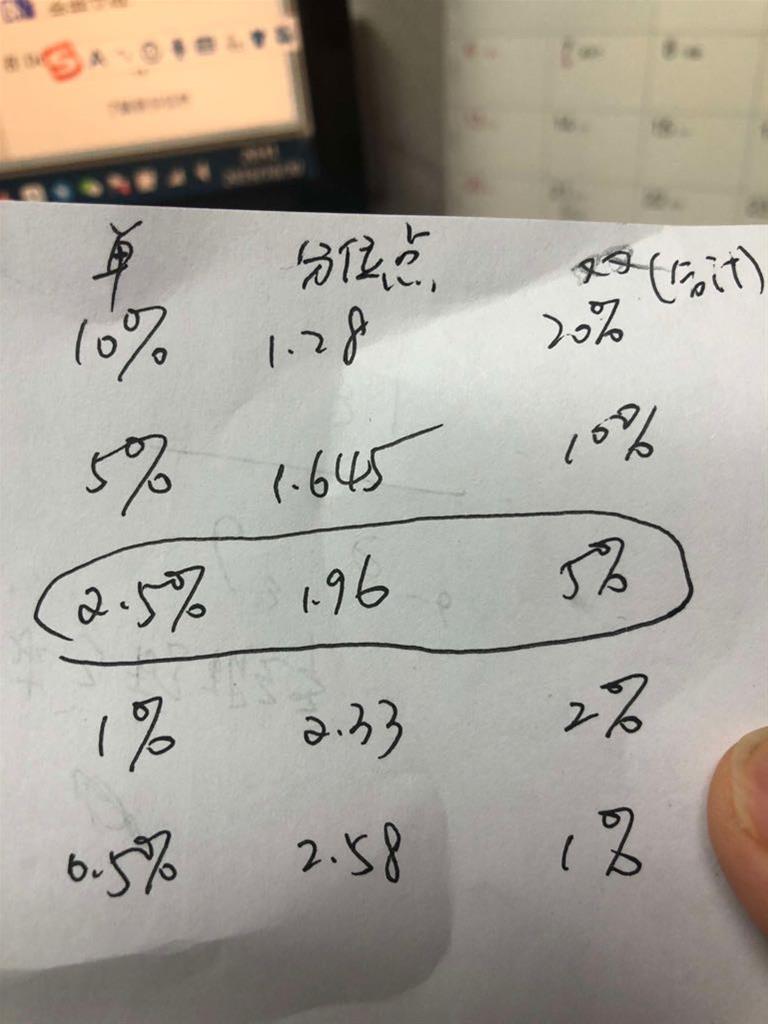 单 分位点 双(合计)
10% 1.28 20%
5% 1.645 10%
2.5% 1.96 5%
1% 2.33 2%
0.5% 2.58 1%